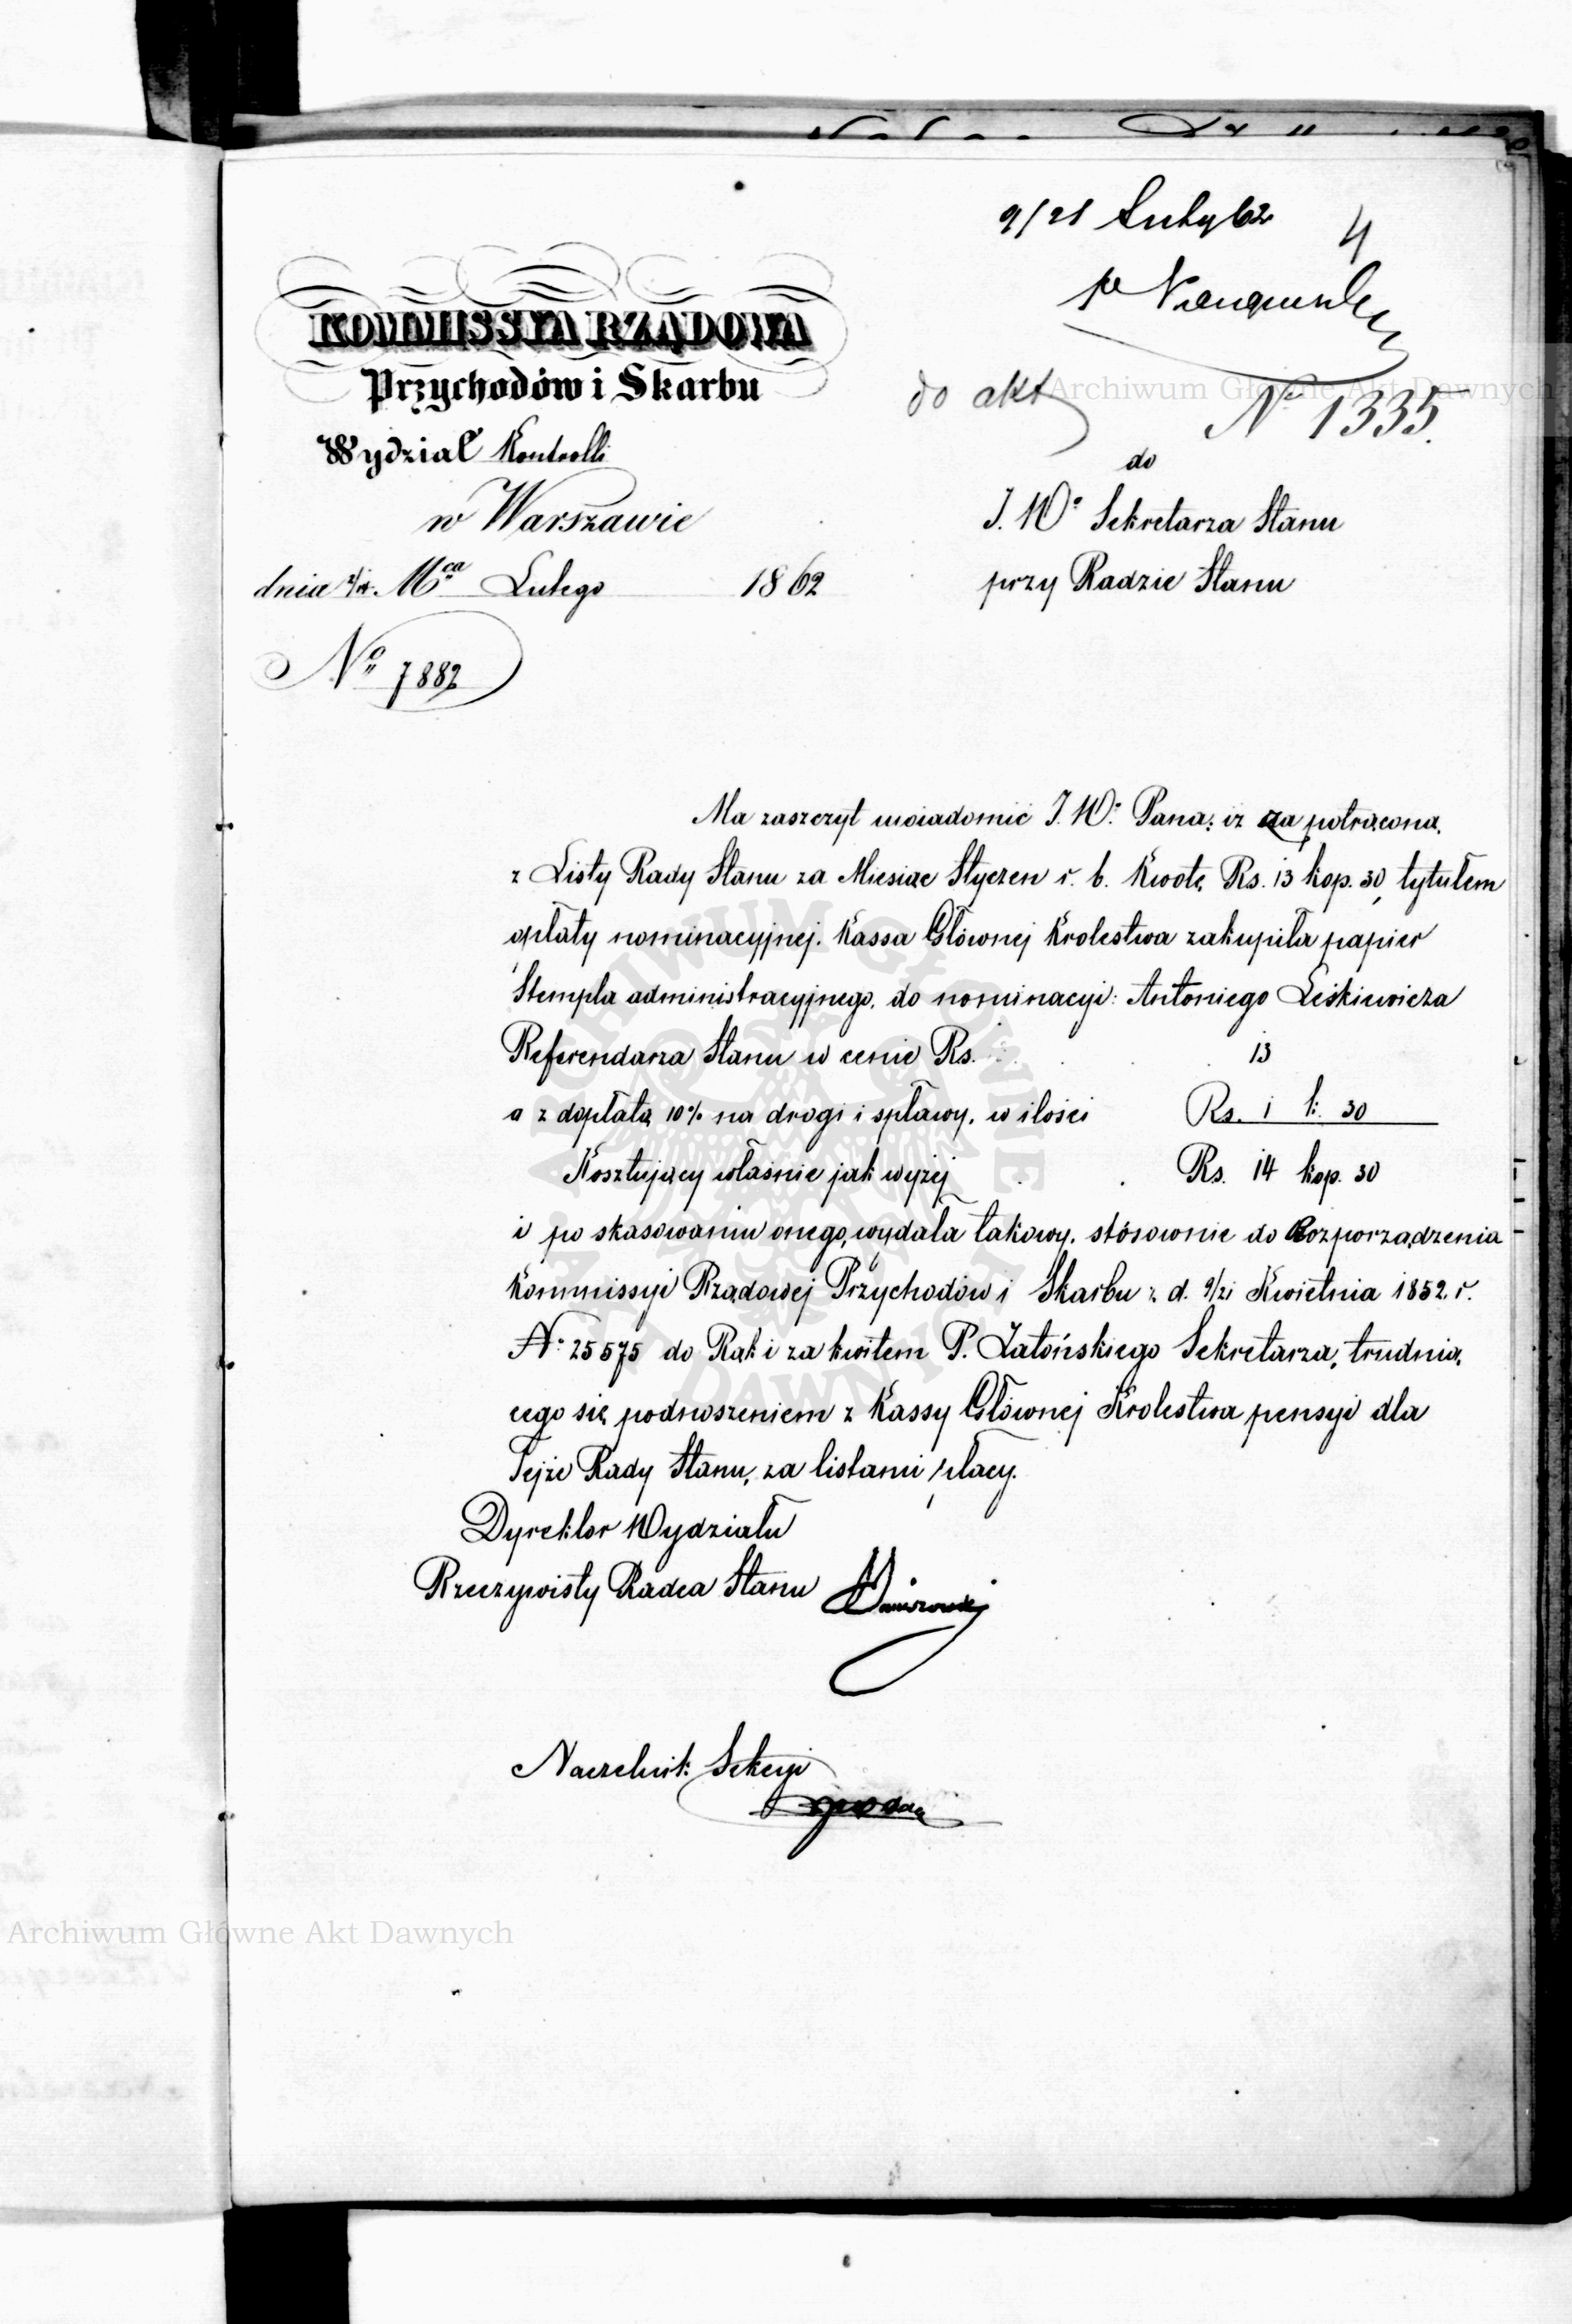 9/21 Lutego 62
4
do akt
Archiwum Główne Akt Dawnych
Nº 1335.
KOMMISSYA RZĄDOWA
Przychodów i Skarbu
Wydział Kontrolli
w Warszawie
dnia Mca Lutego 1862
Nº 7882
do
J. Wº Sekretarza Stanu
przy Radzie Stanu
Ma zaszczyt uwiadomić J. W. Pana: iż za potrąconą,
z Listy Rady Stanu za Miesiąc Styczeń r. b. Kwotę Rs. 13 kop. 30, tytułem
opłaty nominacyjnej. Kassa Głównej Krolestwa zakupiła papier
Stempla administracyjnego, do nominacyi: Antoniego Leśkiewicza
Referendarza Stanu w cenie Rs. 13
a z dopłatą 10% na drogi i spławy, w ilości Rs. 1 k. 30
Kosztujący właśnie jak wyżej Rs. 14 kop. 30
i po skasowaniu onego, wydała takowy, stósownie do Rozporządzenia
Kommissyi Rządowej Przychodów i Skarbu z d. 9/21 Kwietnia 1852 r.
Nº 25575 do Rąk i za kwitem P. Zatońskiego Sekretarza, trudnią,
cego się podnoszeniem z Kassy Głównej Krolestwa pensyi dla
Tejże Rady Stanu, za listami płacy.
Dyrektor Wydziału
Rzeczywisty Radca Stanu
Naczelnik Sekcyi
Archiwum Główne Akt Dawnych
ARCHIWUM GŁÓWNE AKT DAWNYCH